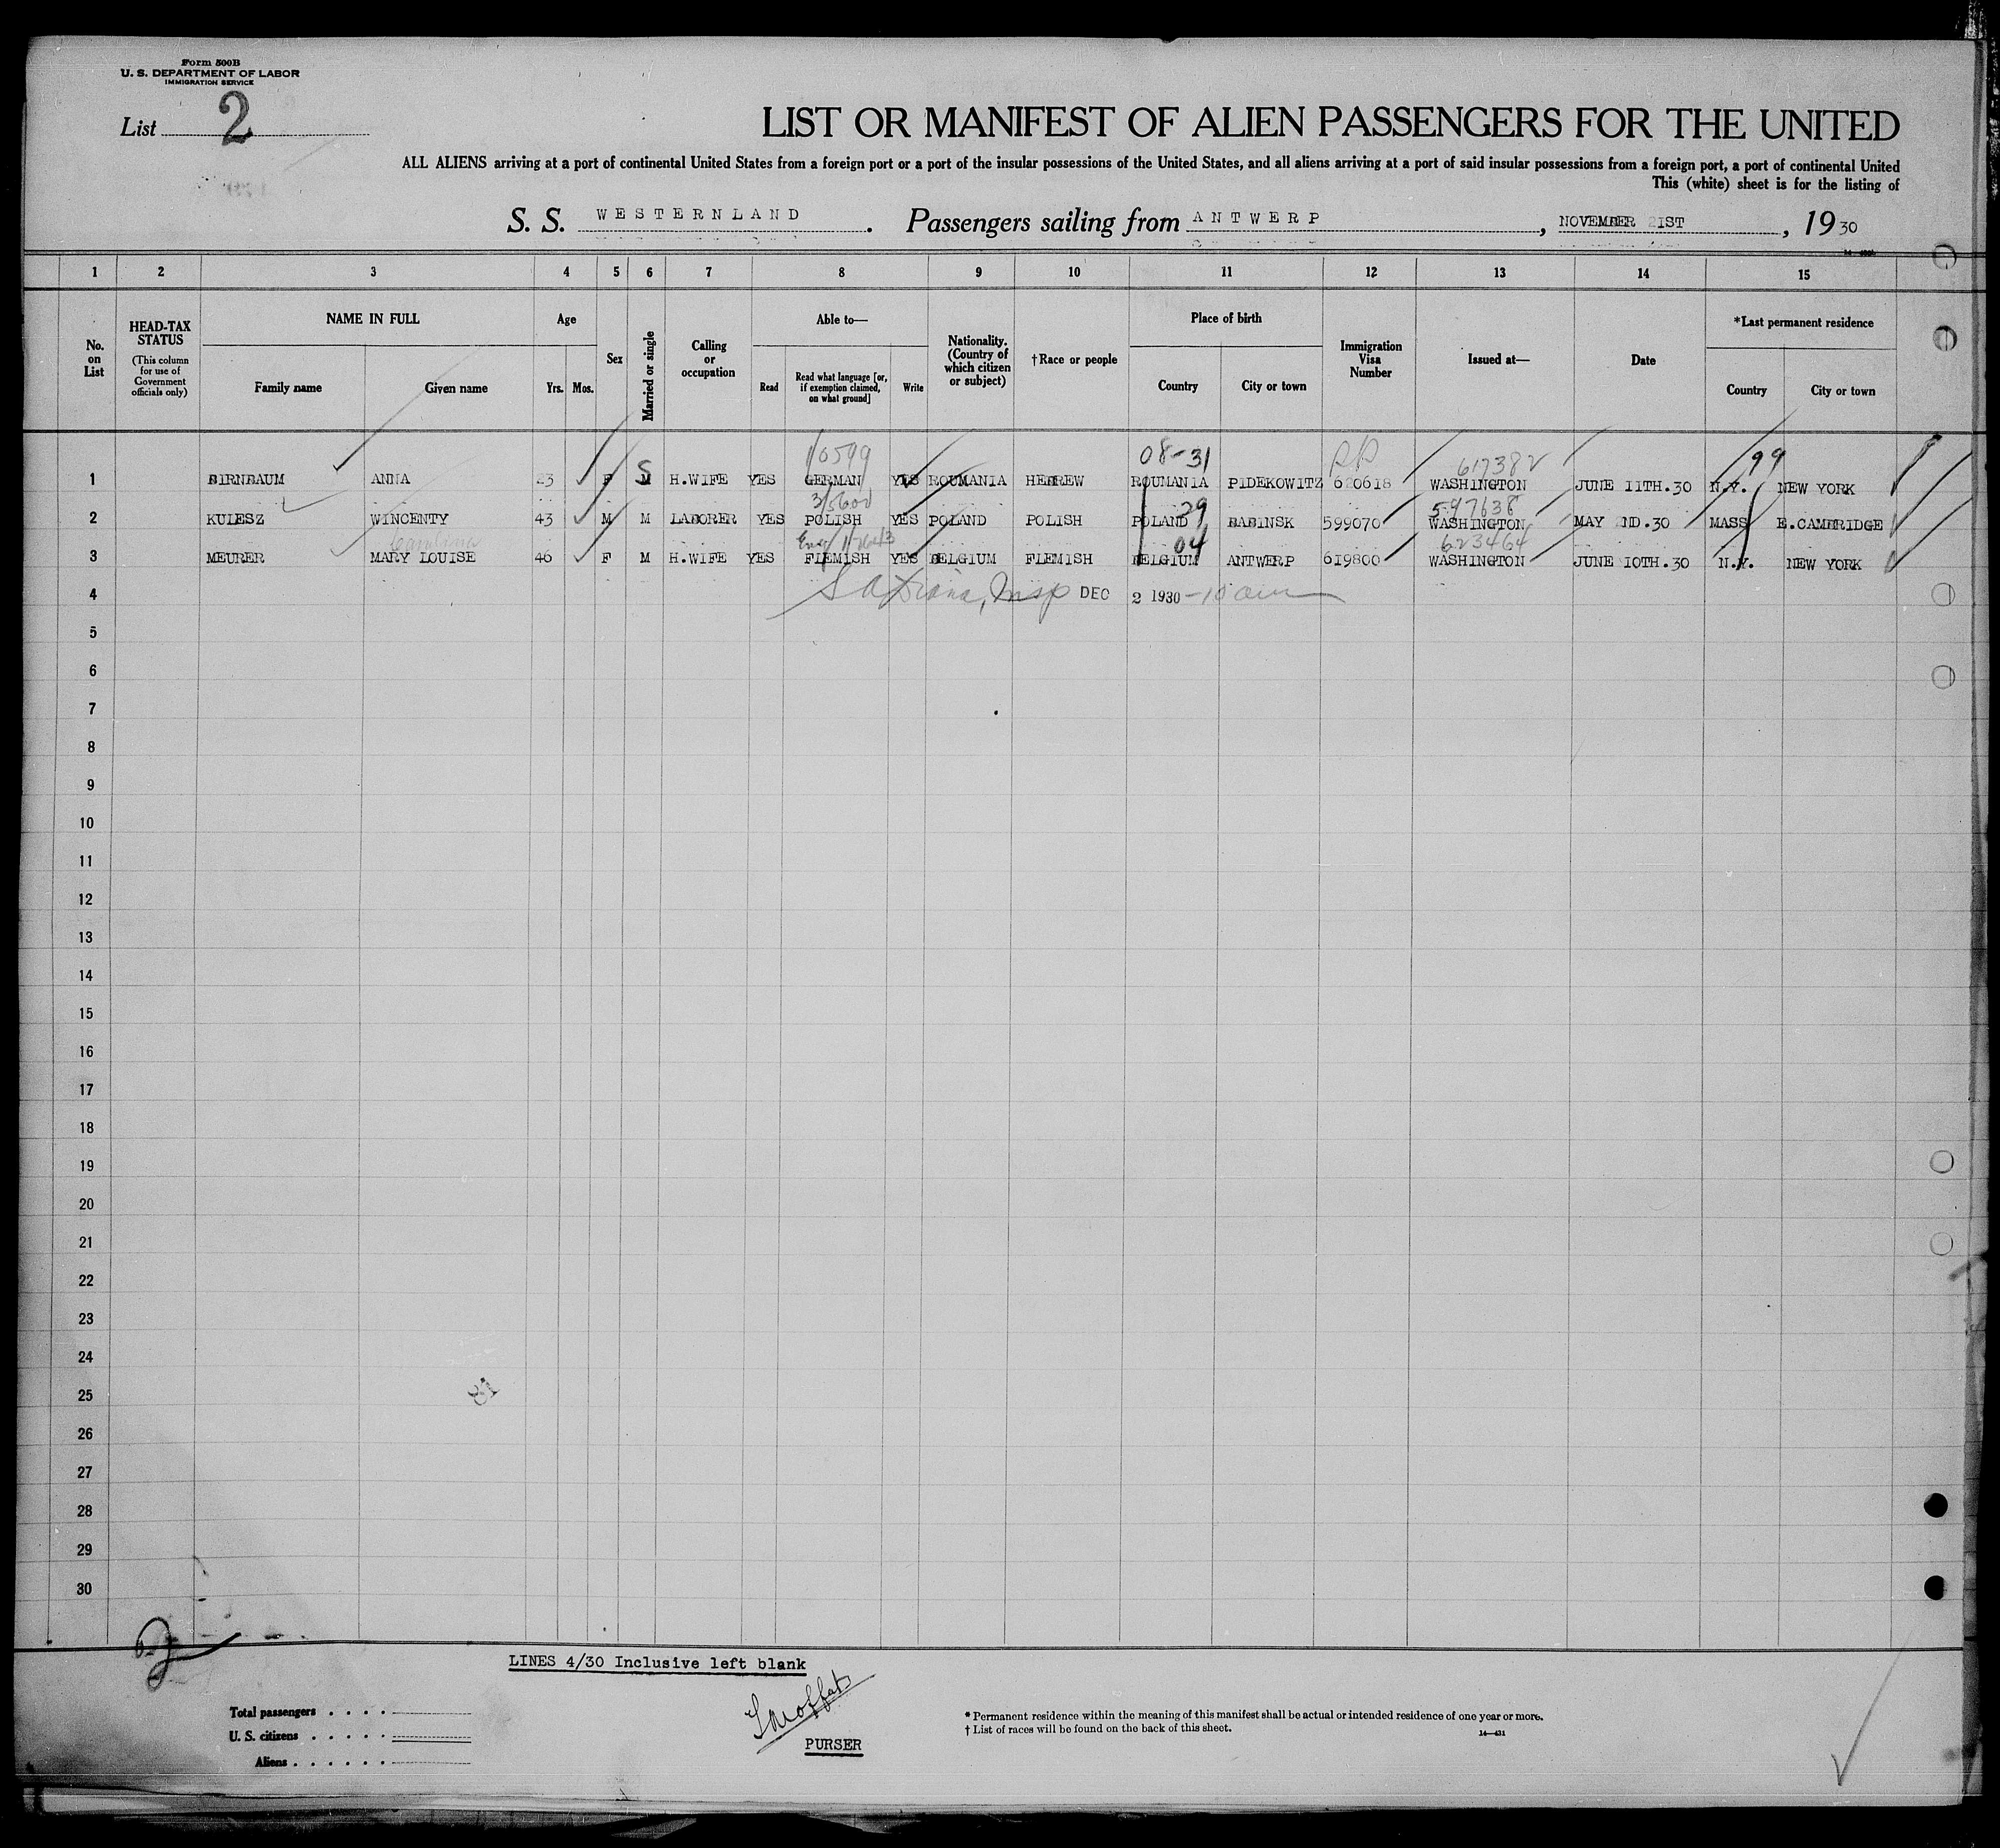 Form 500B
U. S. DEPARTMENT OF LABOR
IMMIGRATION SERVICE
List 2
LIST OR MANIFEST OF ALIEN PASSENGERS FOR THE UNITED
ALL ALIENS arriving at a port of continental United States from a foreign port or a port of the insular possessions of the United States, and all aliens arriving at a port of said insular possessions from a foreign port, a port of continental United
This (white) sheet is for the listing of
S. S. WESTERNLAND. Passengers sailing from ANTWERP, NOVEMBER 21ST, 1930
1 2 3 4 5 6 7 8 9 10 11 12 13 14 15
No. on List
HEAD-TAX STATUS (This column for use of Government officials only)
NAME IN FULL
Family name Given name
Age
Yrs. Mos.
Sex
Married or single
Calling or occupation
Able to—
Read Read what language [or, if exemption claimed, on what ground] Write
Nationality. (Country of which citizen or subject)
†Race or people
Place of birth
Country City or town
Immigration Visa Number
Issued at—
Date
*Last permanent residence
Country City or town
10599 08-31 617382 99
1 BIRNBAUM ANNA 23 F M S H.WIFE YES GERMAN YES ROUMANIA HEBREW ROUMANIA PIDEKOWITZ 620618 WASHINGTON JUNE 11TH.30 N.Y. NEW YORK
3/5600 29 597638
2 KULESZ WINCENTY 43 M M LABORER YES POLISH YES POLAND POLISH POLAND BABINSK 599070 WASHINGTON MAY 2ND.30 MASS E.CAMBRIDGE
Eng 04 623464
3 MEURER MARY LOUISE 46 F M H.WIFE YES FLEMISH YES BELGIUM FLEMISH BELGIUM ANTWERP 619800 WASHINGTON JUNE 10TH.30 N.Y. NEW YORK
4 Insp DEC 2 1930 -10 am
5
6
7
8
9
10
11
12
13
14
15
16
17
18
19
20
21
22
23
24
25
26
27
28
29
30
LINES 4/30 Inclusive left blank
Total passengers . . . .
U. S. citizens . . . . .
Aliens . . . . . .
PURSER
* Permanent residence within the meaning of this manifest shall be actual or intended residence of one year or more.
† List of races will be found on the back of this sheet.
14—431